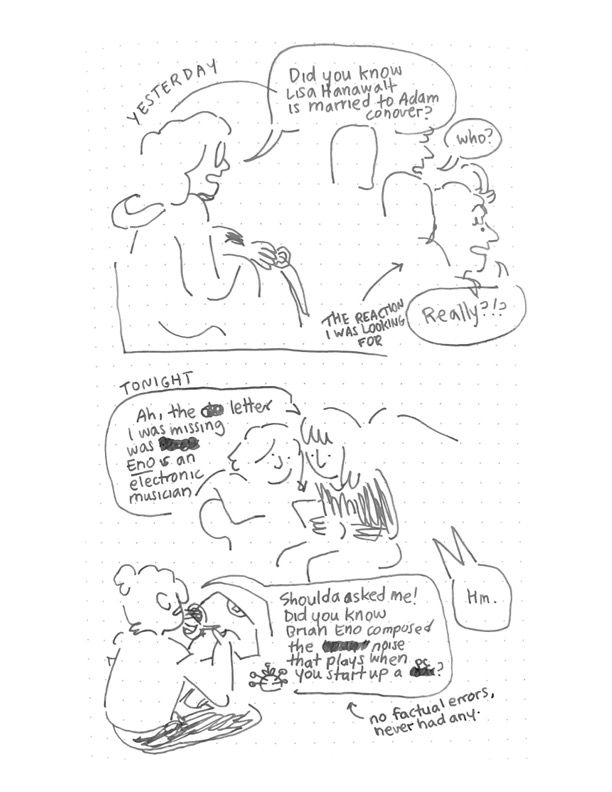 YESTERDAY
Did you know
Lisa Hanawalt
is married to Adam
Conover?
who?
THE REACTION
I WAS LOOKING
FOR
Really?!?
TONIGHT
Ah, the letter
I was missing
was
Eno is an
electronic
musician
Hm.
Shoulda asked me!
Did you know
Brian Eno composed
the noise
that plays when
you start up a PC?
no factual errors,
never had any.